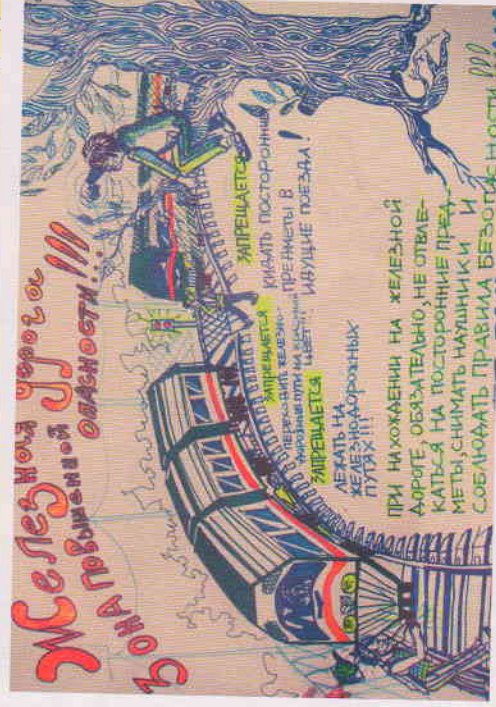 Железная дорога
Зона повышенной опасности!!!
ЗАПРЕЩАЕТСЯ
КИДАТЬ ПОСТОРОННИЕ
ПРЕДМЕТЫ В
ИДУЩИЕ ПОЕЗДА!
ЗАПРЕЩАЕТСЯ
ПЕРЕХОДИТЬ ЖЕЛЕЗНО-
ДОРОЖНЫЕ ПУТИ НА КРАСНЫЙ
ЦВЕТ!!!
ЗАПРЕЩАЕТСЯ
ЛЕЖАТЬ НА
ЖЕЛЕЗНОДОРОЖНЫХ
ПУТЯХ!!!
ПРИ НАХОЖДЕНИИ НА ЖЕЛЕЗНОЙ
ДОРОГЕ, ОБЯЗАТЕЛЬНО, НЕ ОТВЛЕ-
КАТЬСЯ НА ПОСТОРОННИЕ ПРЕД-
МЕТЫ, СНИМАТЬ НАУШНИКИ И
СОБЛЮДАТЬ ПРАВИЛА БЕЗОПАСНОСТИ!!!